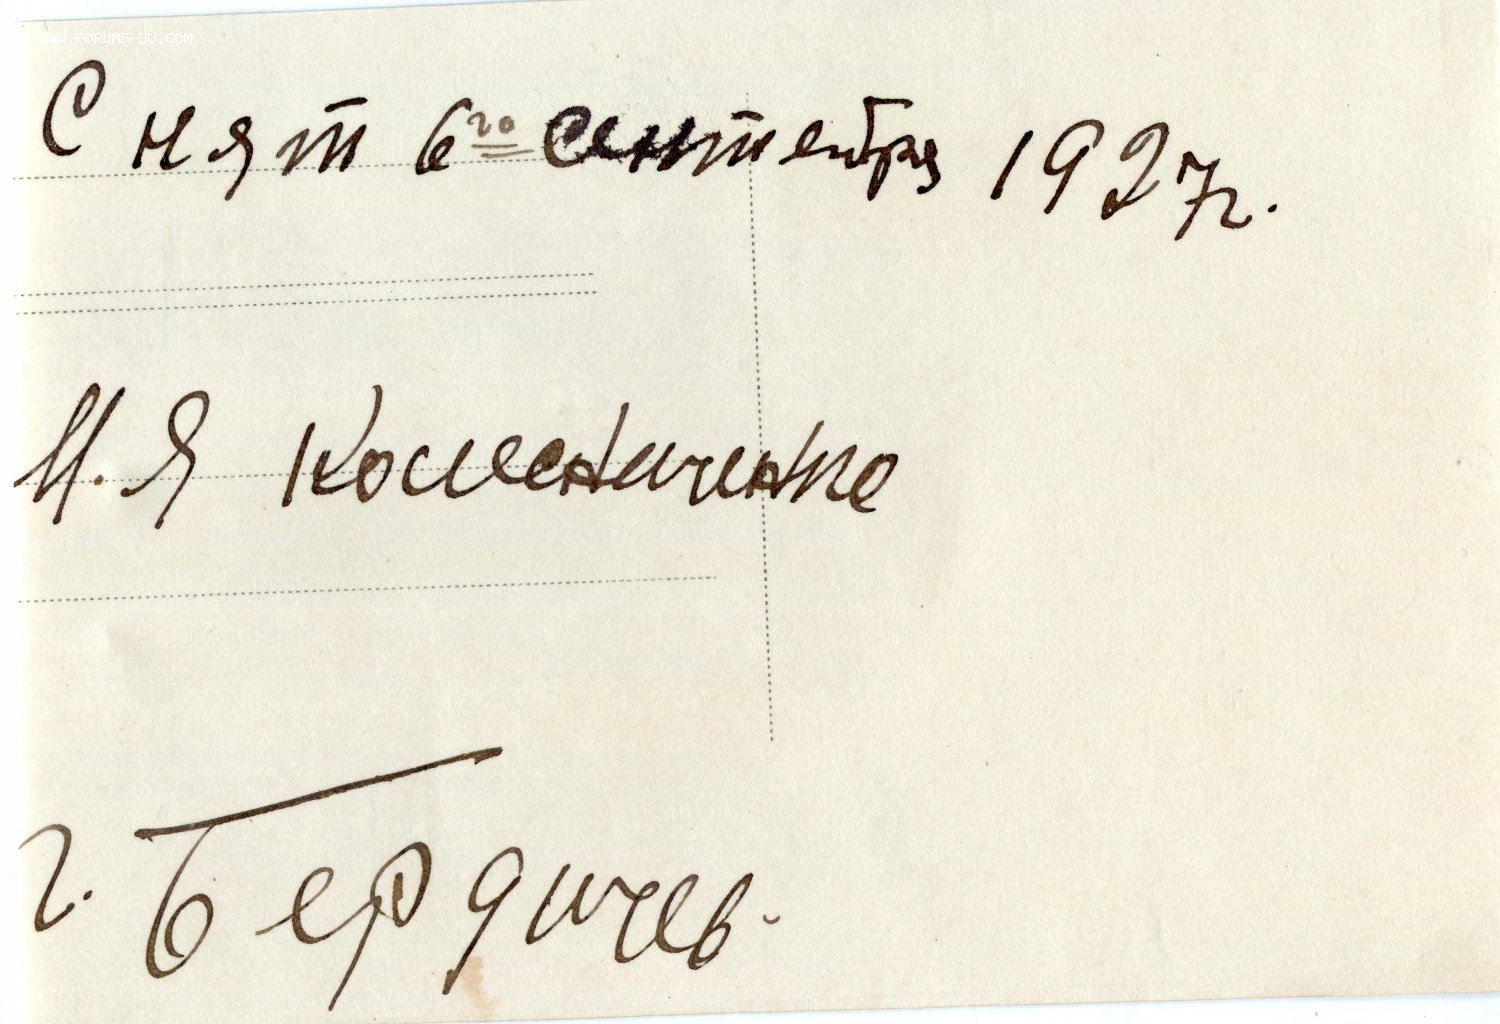 WWW.FORUMS-SU.COM
Снят 6го сентября 1927г.
И. Я Коменниченко
г. Бердичев.